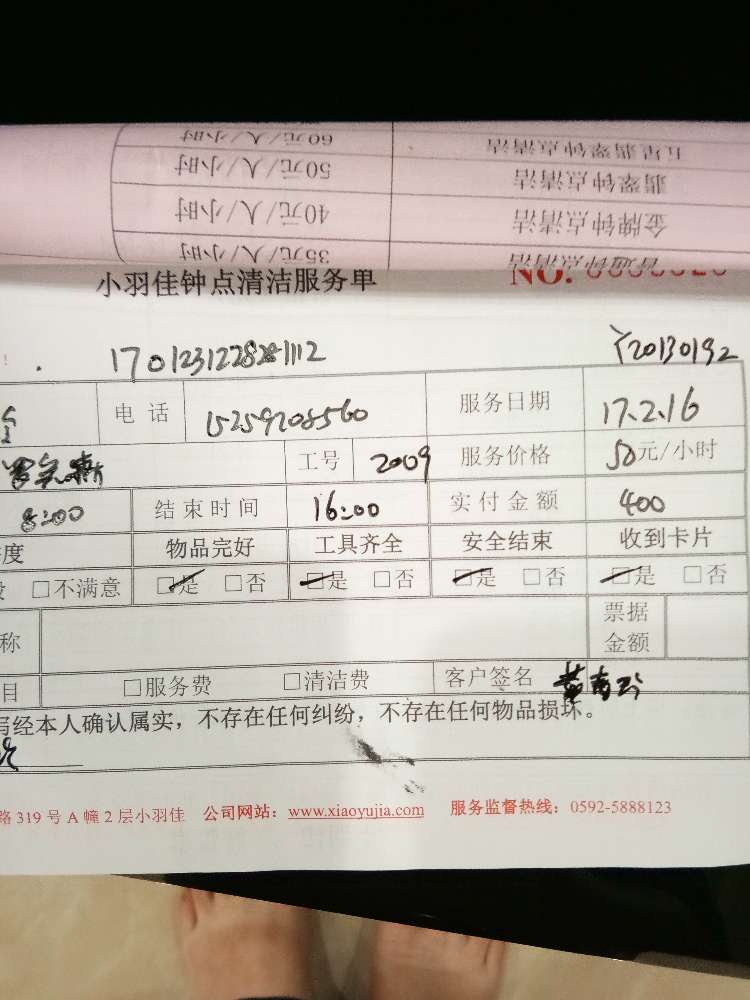 60元/人/小时
五星翡翠钟点清洁
50元/人/小时
翡翠钟点清洁
40元/人/小时
金牌钟点清洁
35元/人/小时
普通钟点清洁
小羽佳钟点清洁服务单 NO.
20130192
电话 15259208560 服务日期 17.2.16
工号 2009 服务价格 50元/小时
8:00 结束时间 16:00 实付金额 400
度 物品完好 工具齐全 安全结束 收到卡片
□不满意 □是 □否 □是 □否 □是 □否 □是 □否
称 票据金额
目 □服务费 □清洁费 客户签名
写经本人确认属实，不存在任何纠纷，不存在任何物品损坏。
路 319 号 A 幢 2 层小羽佳 公司网站：www.xiaoyujia.com 服务监督热线：0592-5888123